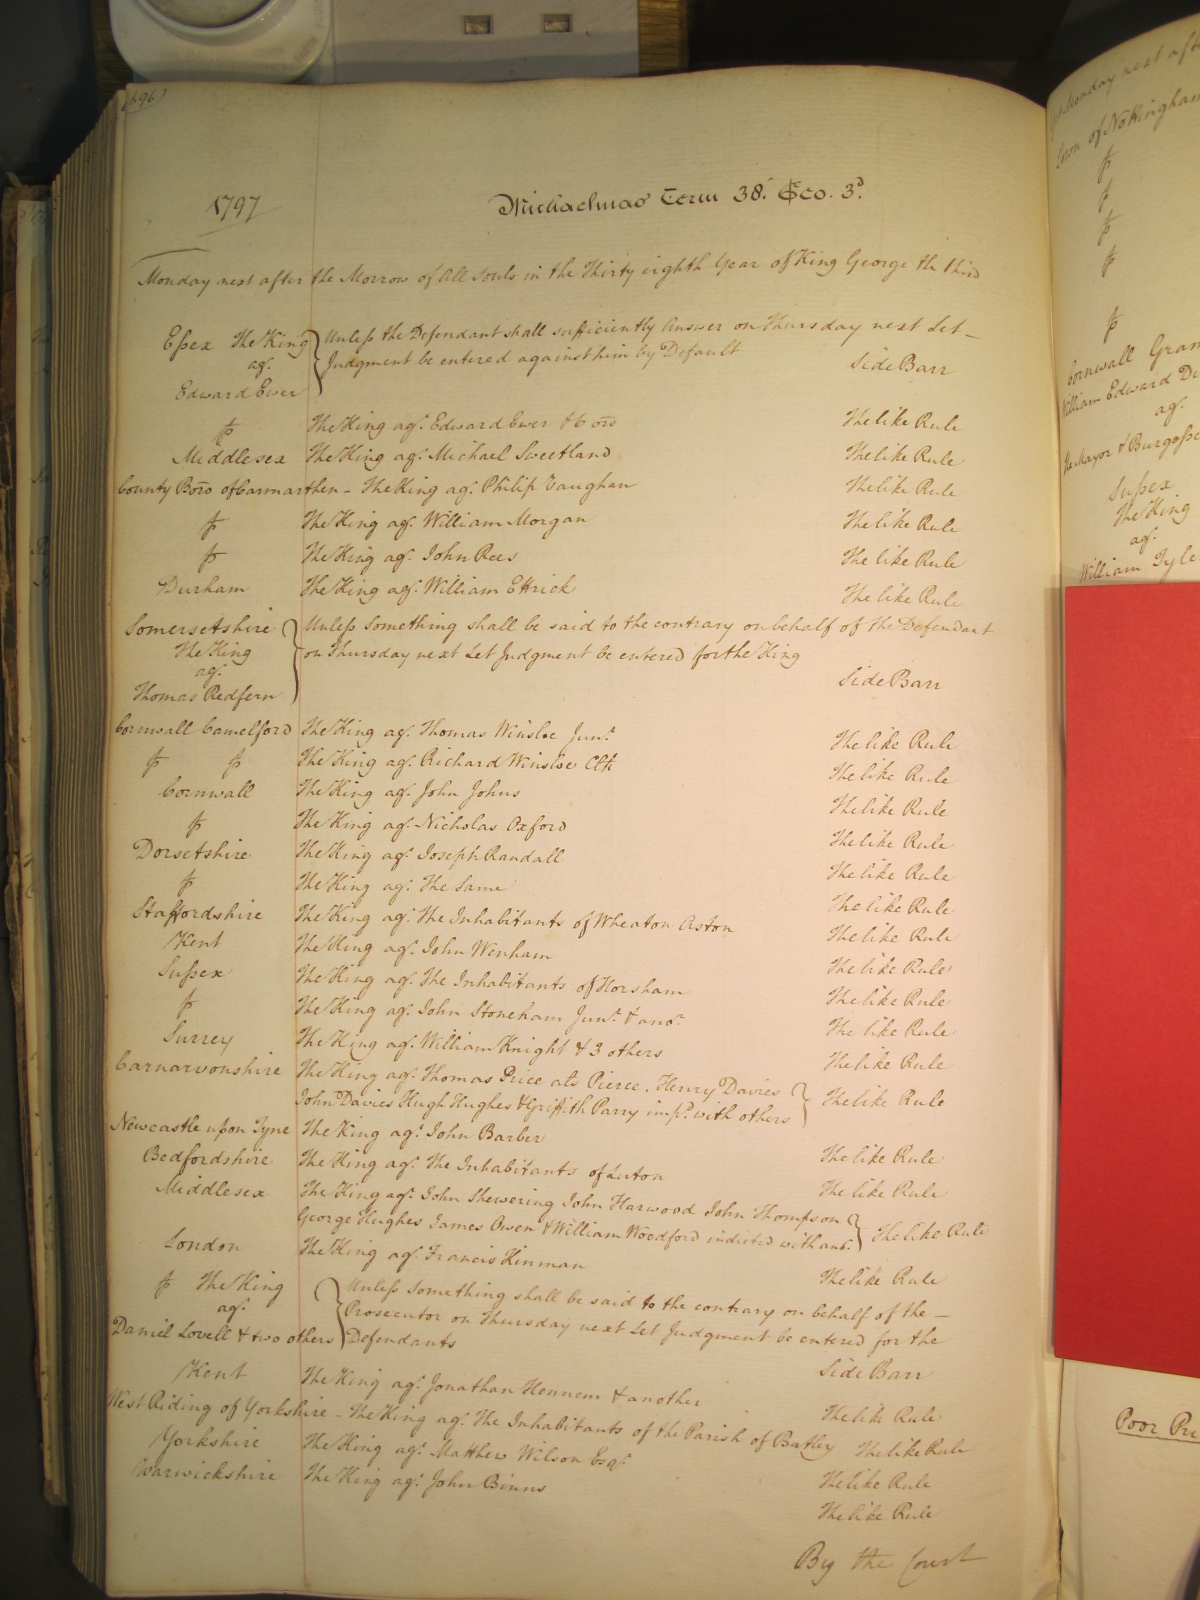 1797
Michaelmas Term 38. Geo. 3d.
Monday next after the Morrow of All Souls in the Thirty eighth Year of King George the third
Essex The King
agt.
Edward Ewer
Unless the Defendant shall sufficiently Answer on Thursday next Let
Judgment be entered against him by Default
Side Barr
The King agt. Edward Ewer & 6 ors The like Rule
Middlesex The King agt. Michael Sweetland The like Rule
County Boro of Carmarthen - The King agt. Philip Vaughan The like Rule
The King agt. William Morgan The like Rule
The King agt. John Rees The like Rule
Durham The King agt. William Ettrick The like Rule
Somersetshire
The King
agt.
Thomas Redfern
Unless Something shall be said to the contrary on behalf of the Defendant
on Thursday next Let Judgment be entered for the King
Side Barr
Cornwall Camelford The King agt. Thomas Winsloe Junr. The like Rule
The King agt. Richard Winsloe Clk The like Rule
Cornwall The King agt. John Johns The like Rule
The King agt. Nicholas Oxford The like Rule
Dorsetshire The King agt. Joseph Randall The like Rule
The King agt. The Same The like Rule
Staffordshire The King agt. The Inhabitants of Wheaton Aston The like Rule
Kent The King agt. John Wenham The like Rule
Sussex The King agt. The Inhabitants of Horsham The like Rule
The King agt. John Stoneham Junr. & anor. The like Rule
Surrey The King agt. William Knight & 3 others The like Rule
Carnarvonshire The King agt. Thomas Price als Pierce, Henry Davies
John Davies Hugh Hughes & Griffith Parry impd. with others The like Rule
Newcastle upon Tyne The King agt. John Barber The like Rule
Bedfordshire The King agt. The Inhabitants of Luton The like Rule
Middlesex The King agt. John Shewering John Harwood John Thompson
George Hughes James Owen & William Woodford indicted with anr. The like Rule
London The King agt. Francis Hinman The like Rule
The King
agt.
Daniel Lovell & two others
Unless Something shall be said to the contrary on behalf of the
Prosecutor on Thursday next Let Judgment be entered for the
Defendants
Side Barr
Kent The King agt. Jonathan Hennem & another The like Rule
West Riding of Yorkshire - The King agt. The Inhabitants of the Parish of Batley The like Rule
Yorkshire The King agt. Matthew Wilson Esqr. The like Rule
Warwickshire The King agt. John Binns The like Rule
By the Court
of Nottingham
Cornwall Gran
William Edward De
agt.
The Mayor & Burgesse
Sussex
The King
agt.
William Tyle
Poor Pri